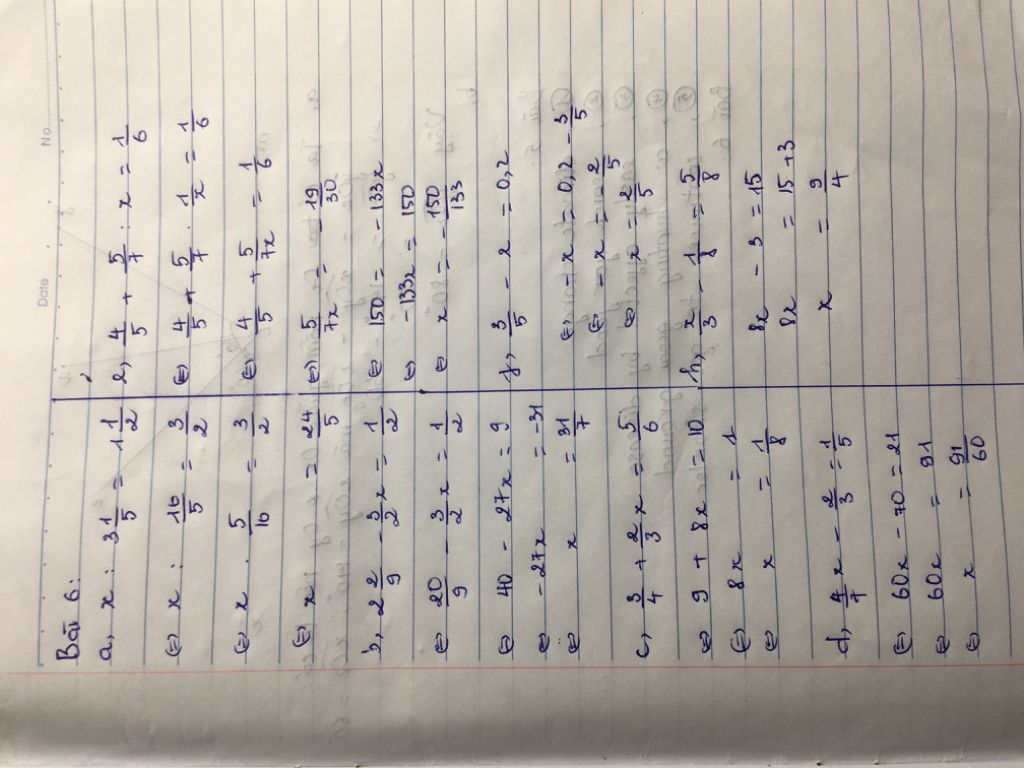 Date
No.
Bài 6:
a, x : 3 1/5 = 1 1/2
(=) x : 16/5 = 3/2
(=) x . 5/16 = 3/2
(=) x = 24/5
b, 2 2/9 - 3/2 x = 1/2
(=) 20/9 - 3/2 x = 1/2
(=) 40 - 27x = 9
(=) -27x = -31
(=) x = 31/7
c, 3/4 + 2/3 x = 5/6
(=) 9 + 8x = 10
(=) 8x = 1
(=) x = 1/8
d, 4/7 x - 2/3 = 1/5
(=) 60x - 70 = 21
(=) 60x = 91
(=) x = 91/60
e, 4/5 + 5/7 : x = 1/6
(=) 4/5 + 5/7 . 1/x = 1/6
(=) 4/5 + 5/7x = 1/6
(=) 5/7x = - 19/30
(=) 150 = -133x
(=) -133x = 150
(=) x = - 150/133
f, 3/5 - x = 0,2
(=) - x = 0,2 - 3/5
(=) - x = - 2/5
(=) x = 2/5
h, x/3 - 1/8 = 5/8
8x - 3 = 15
8x = 15 + 3
x = 9/4